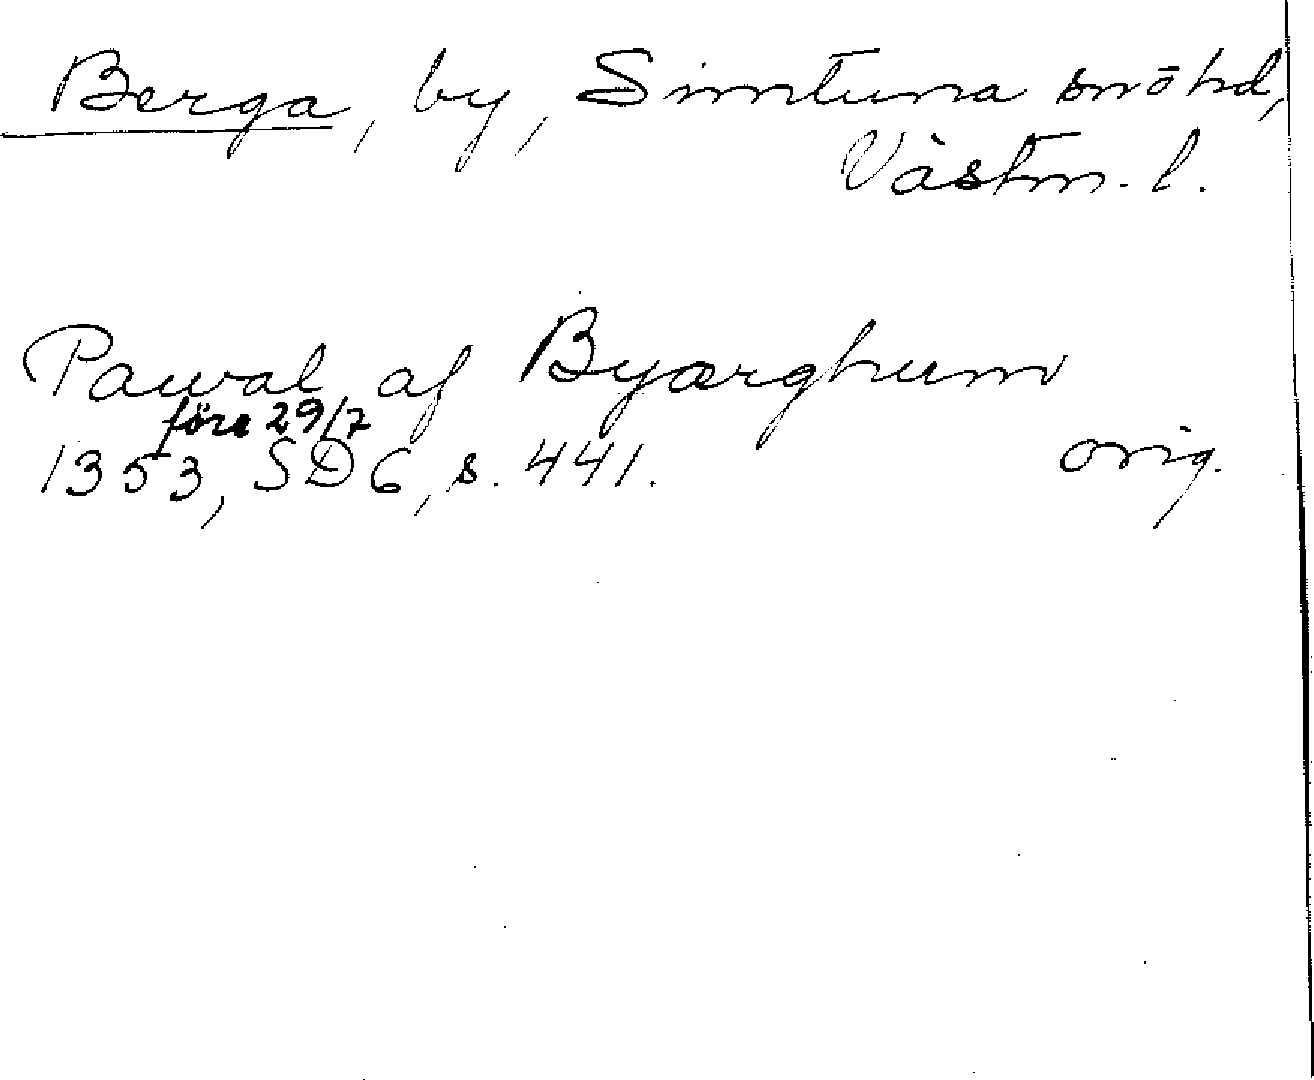 Berga, by, Simtuna snöhd,
Västm. l.
Pawal af Byærghum
före 29/7
1353, SD 6, s. 441. orig.